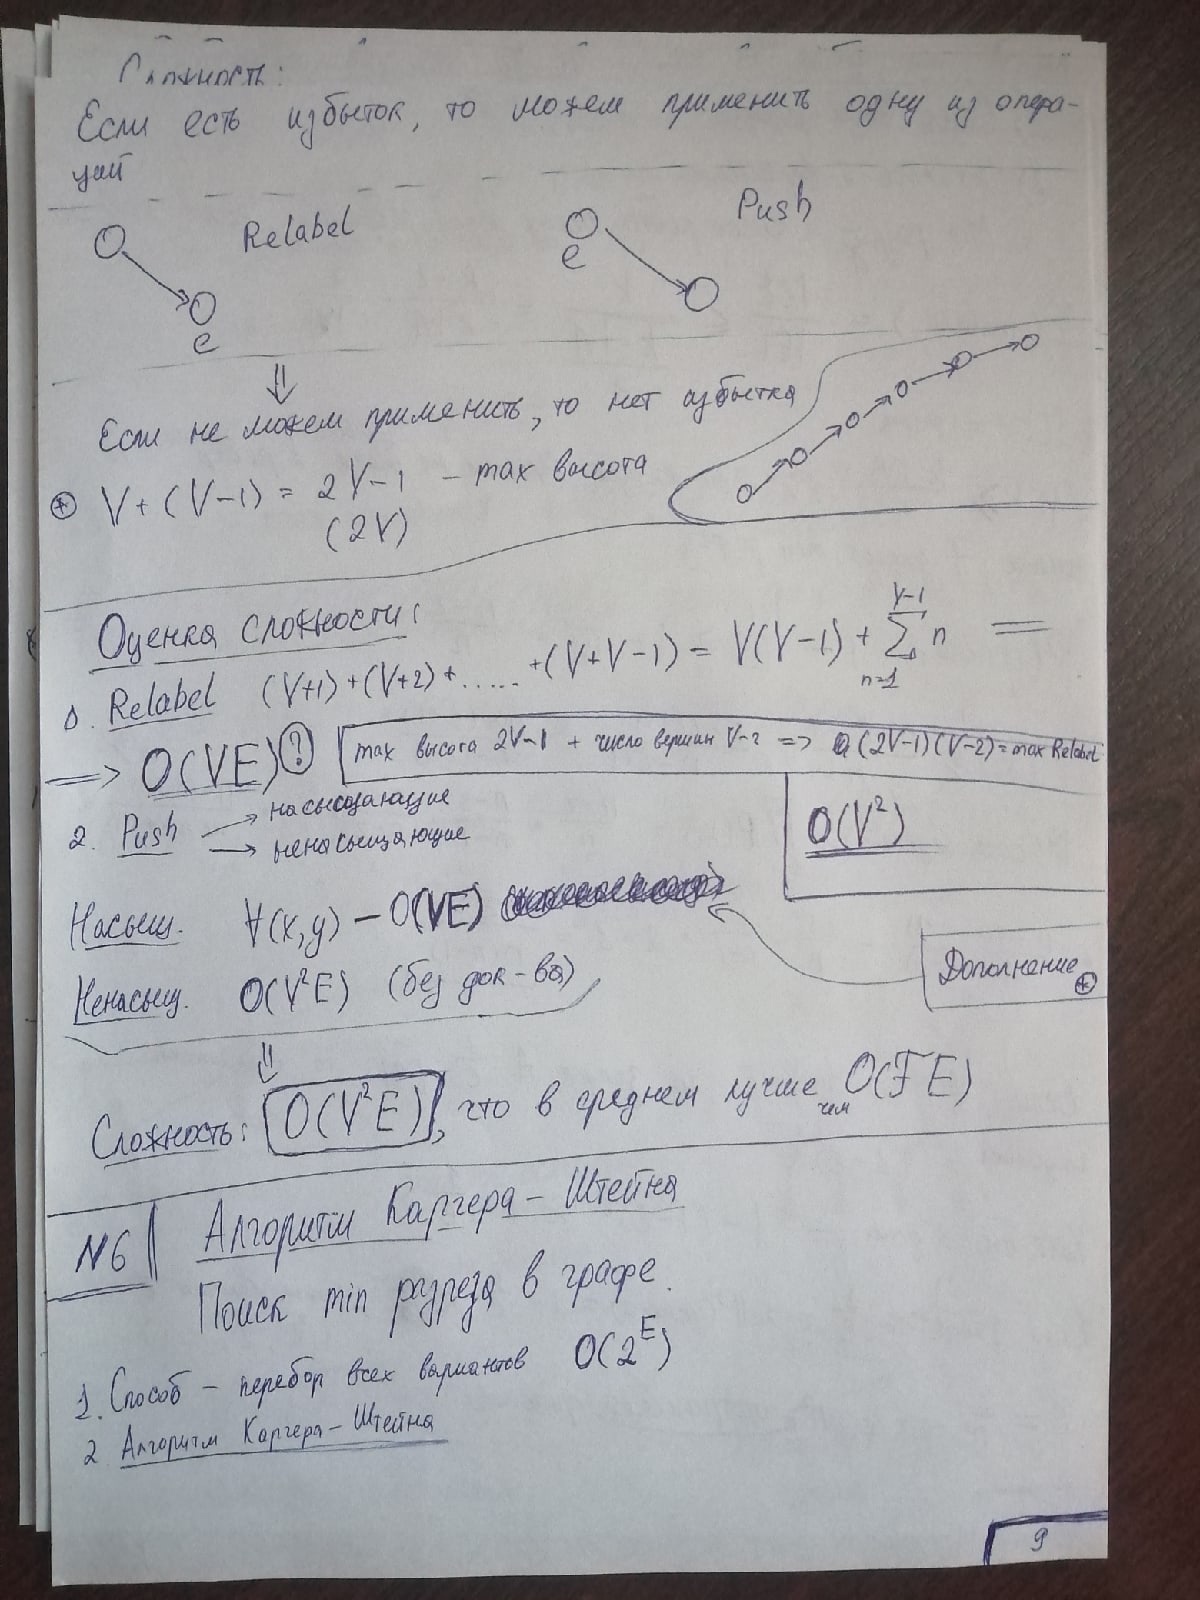 Сложность:
Если есть избыток, то можем применить одну из опера-
ций
Relabel
Push
e
e
⇓
Если не можем применить, то нет избытка
⊛ V+(V-1) = 2V-1 - max высота
(2V)
Оценка сложности:
1. Relabel (V+1)+(V+2)+......+(V+V-1) = V(V-1) + ∑ₙ₌₁^{V-1} n =
=> O(VE) ?
max высота 2V-1 + число вершин V-2 => (2V-1)(V-2) = max Relabel
O(V²)
2. Push → насыщающие
→ ненасыщающие
Насыщ. ∀(x,y) - O(VE)
Дополнение ⊛
Ненасыщ. O(V²E) (без док-ва)
⇓
Сложность: O(V²E), что в среднем лучше чем O(FE)
N6 Алгоритм Каргера-Штейна
Поиск min разреза в графе.
1. Способ - перебор всех вариантов O(2^E)
2 Алгоритм Каргера-Штейна
9